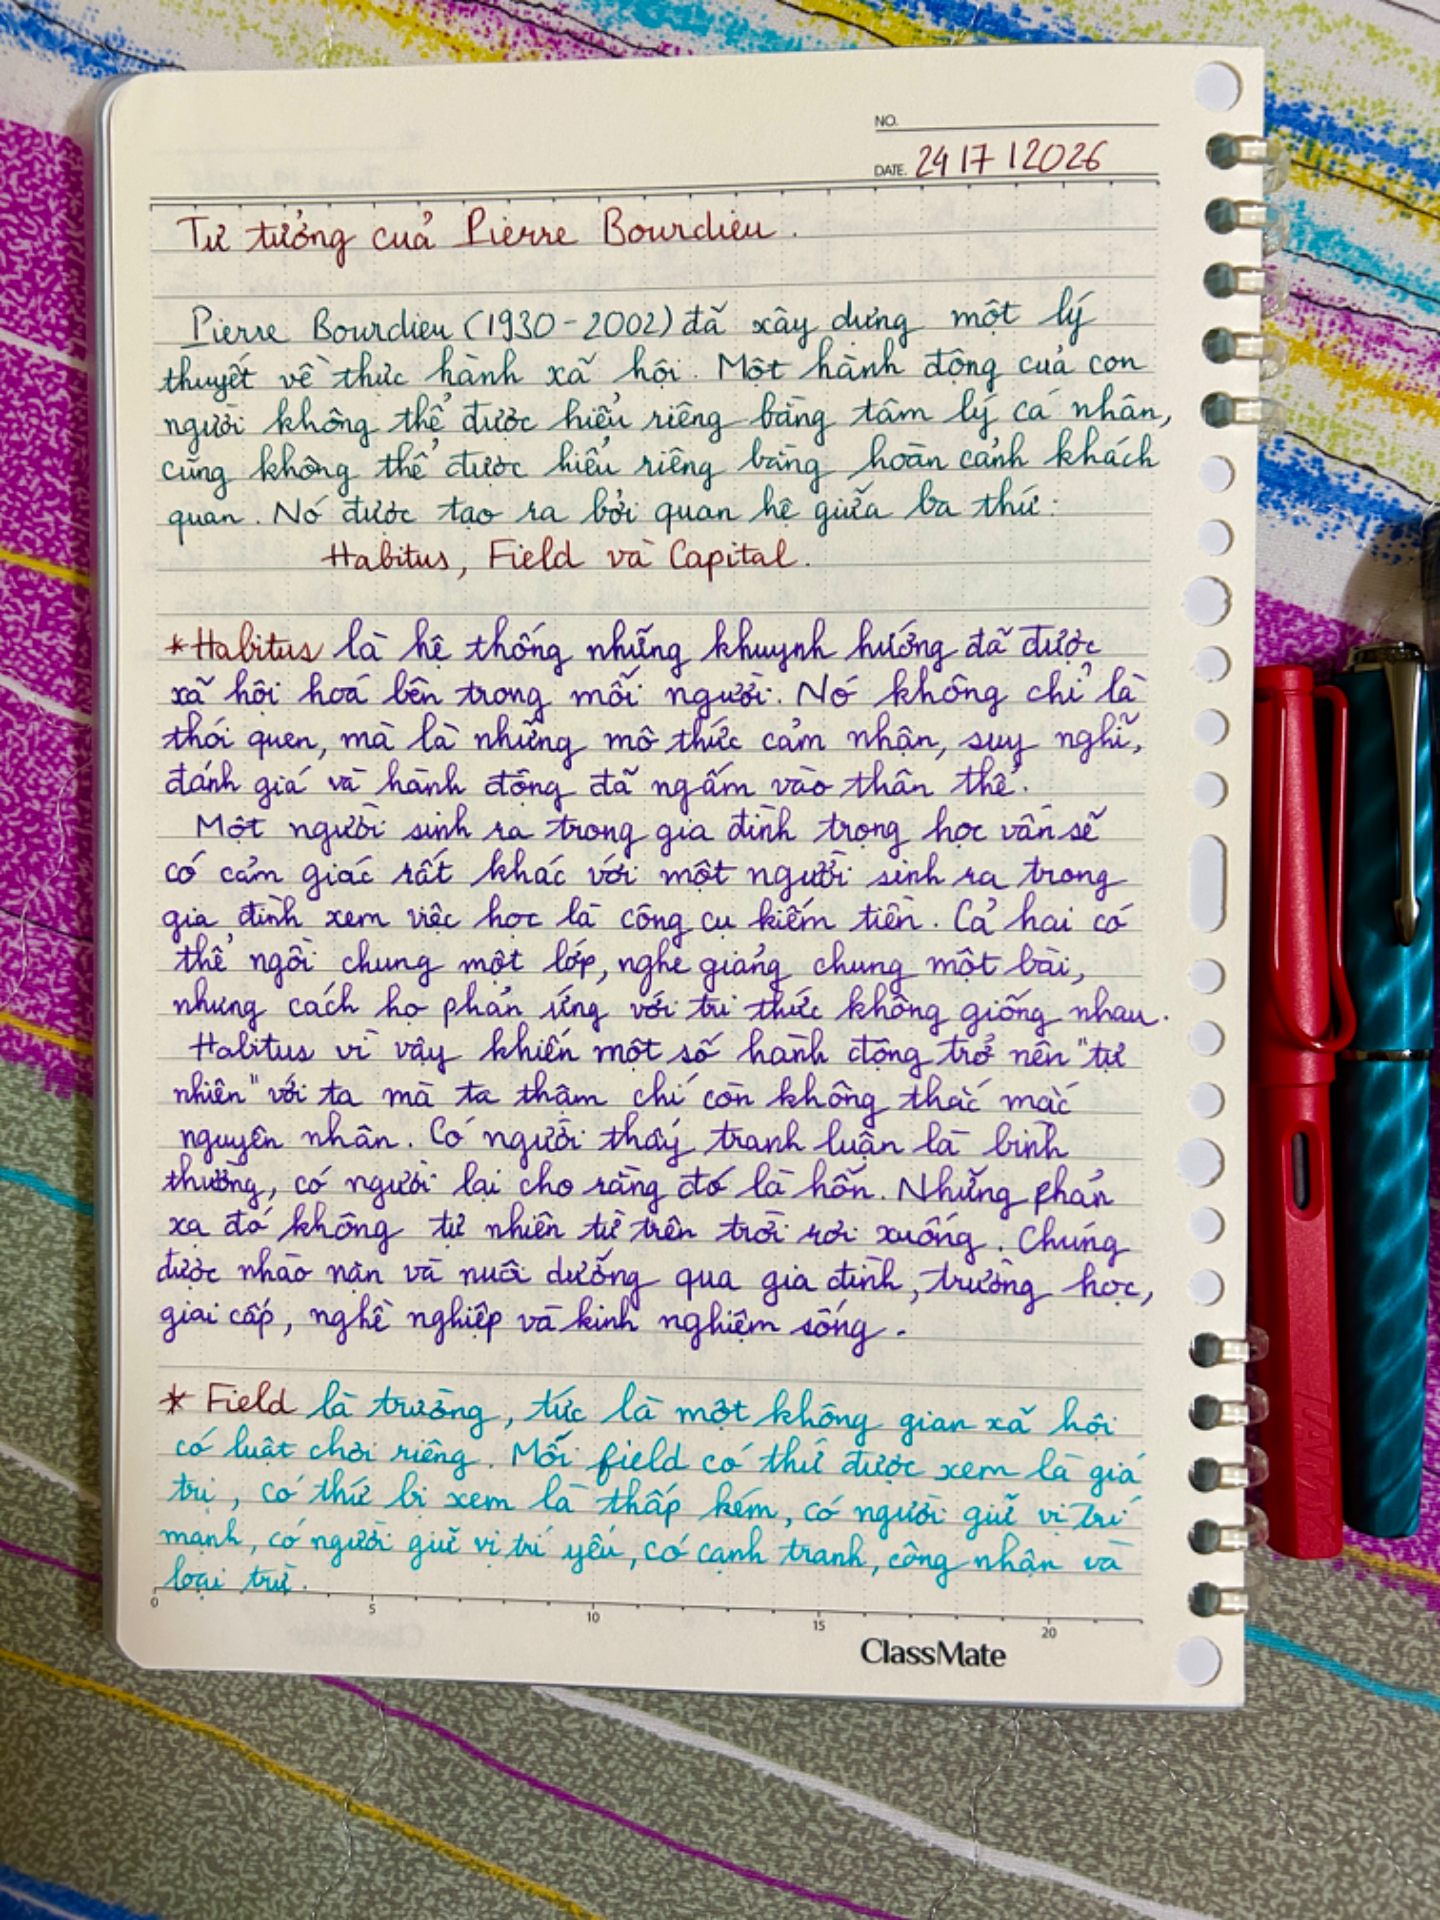 NO.
DATE. 24 | 7 | 2026
Tư tưởng của Pierre Bourdieu.
Pierre Bourdieu (1930-2002) đã xây dựng một lý
thuyết về thực hành xã hội. Một hành động của con
người không thể được hiểu riêng bằng tâm lý cá nhân,
cũng không thể được hiểu riêng bằng hoàn cảnh khách
quan. Nó được tạo ra bởi quan hệ giữa ba thứ:
Habitus, Field và Capital.
*Habitus là hệ thống những khuynh hướng đã được
xã hội hoá bên trong mỗi người. Nó không chỉ là
thói quen, mà là những mô thức cảm nhận, suy nghĩ,
đánh giá và hành động đã ngấm vào thân thể.
Một người sinh ra trong gia đình trọng học vấn sẽ
có cảm giác rất khác với một người sinh ra trong
gia đình xem việc học là công cụ kiếm tiền. Cả hai có
thể ngồi chung một lớp, nghe giảng chung một bài,
nhưng cách họ phản ứng với tri thức không giống nhau.
Habitus vì vậy khiến một số hành động trở nên "tự
nhiên" với ta mà ta thậm chí còn không thắc mắc
nguyên nhân. Có người thấy tranh luận là bình
thường, có người lại cho rằng đó là hỗn. Những phản
xạ đó không tự nhiên từ trên trời rơi xuống. Chúng
được nhào nặn và nuôi dưỡng qua gia đình, trường học,
giai cấp, nghề nghiệp và kinh nghiệm sống.
* Field là trường, tức là một không gian xã hội
có luật chơi riêng. Mỗi field có thứ được xem là giá
trị, có thứ bị xem là thấp kém, có người giữ vị trí
mạnh, có người giữ vị trí yếu, có cạnh tranh, công nhận và
loại trừ.
0 5 10 15 20
ClassMate
LAMY